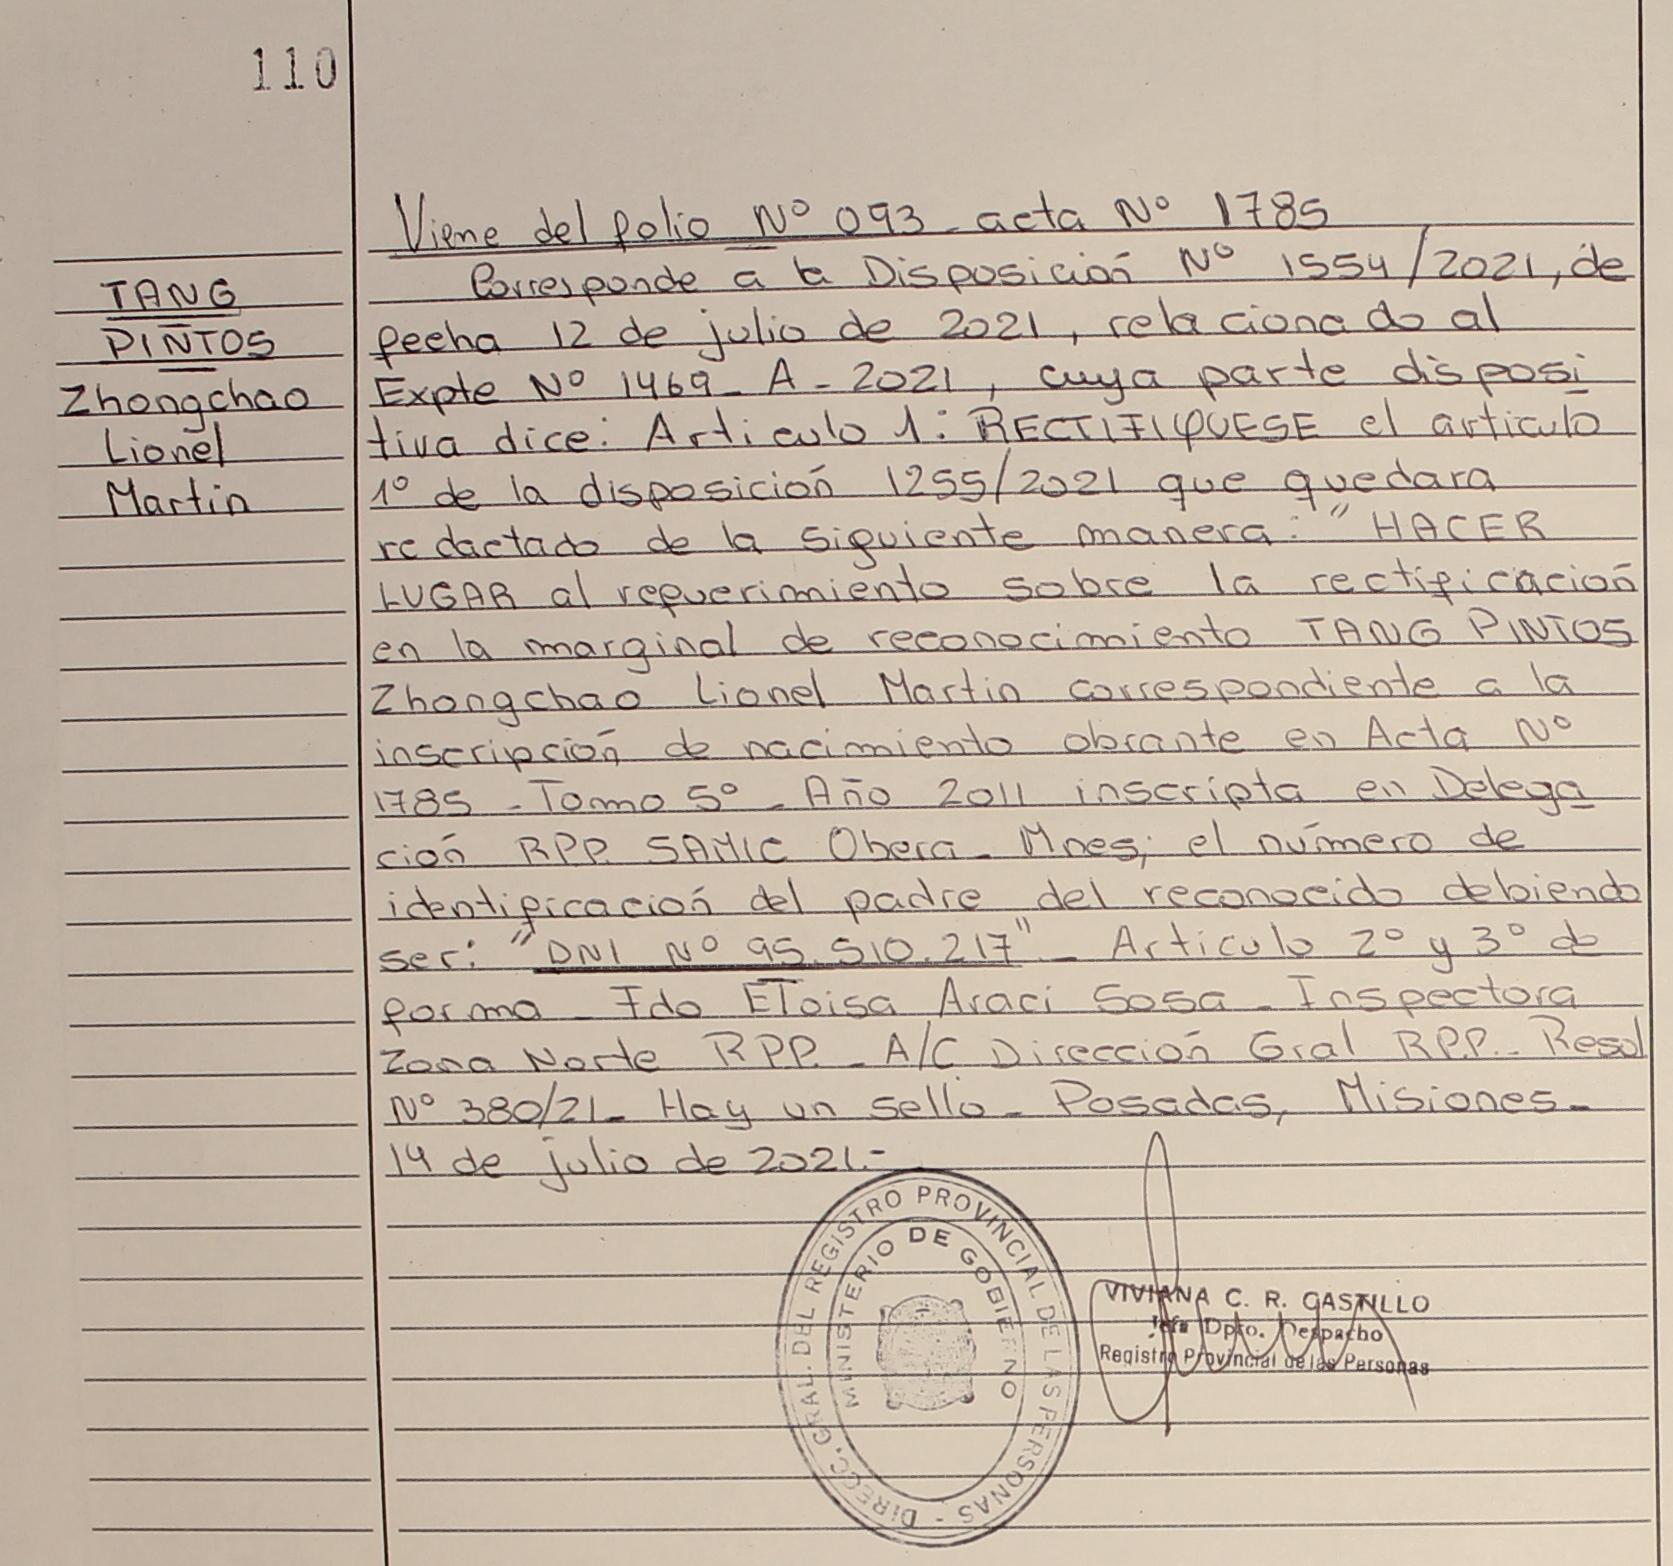 110
TANG
PINTOS
Zhongchao
Lionel
Martin
Viene del folio Nº 093 - acta Nº 1785
Corresponde a la Disposición Nº 1554/2021, de
fecha 12 de julio de 2021, relacionado al
Expte Nº 1469 - A - 2021, cuya parte disposi
tiva dice: Articulo 1: RECTIFIQUESE el articulo
1º de la disposición 1255/2021 que quedara
redactado de la siguiente manera: "HACER
LUGAR al requerimiento sobre la rectificación
en la marginal de reconocimiento TANG PINTOS
Zhongchao Lionel Martin correspondiente a la
inscripción de nacimiento obrante en Acta Nº
1785 - Tomo 5º - Año 2011 inscripta en Delega
ción RPP. SAMIC Obera - Mnes; el número de
identificación del padre del reconocido debiendo
ser: "DNI Nº 95.510.217" - Articulo 2º y 3º de
forma - Fdo Eloisa Araci Sosa - Inspectora
Zona Norte RPP. - A/C Dirección Gral RPP. - Resol
Nº 380/21 - Hay un sello - Posadas, Misiones -
14 de julio de 2021.-
DIRECC. GRAL. DEL REGISTRO PROVINCIAL DE LAS PERSONAS -
MINISTERIO DE GOBIERNO
VIVIANA C. R. CASTILLO
Jefa Dpto. Despacho
Registro Provincial de las Personas